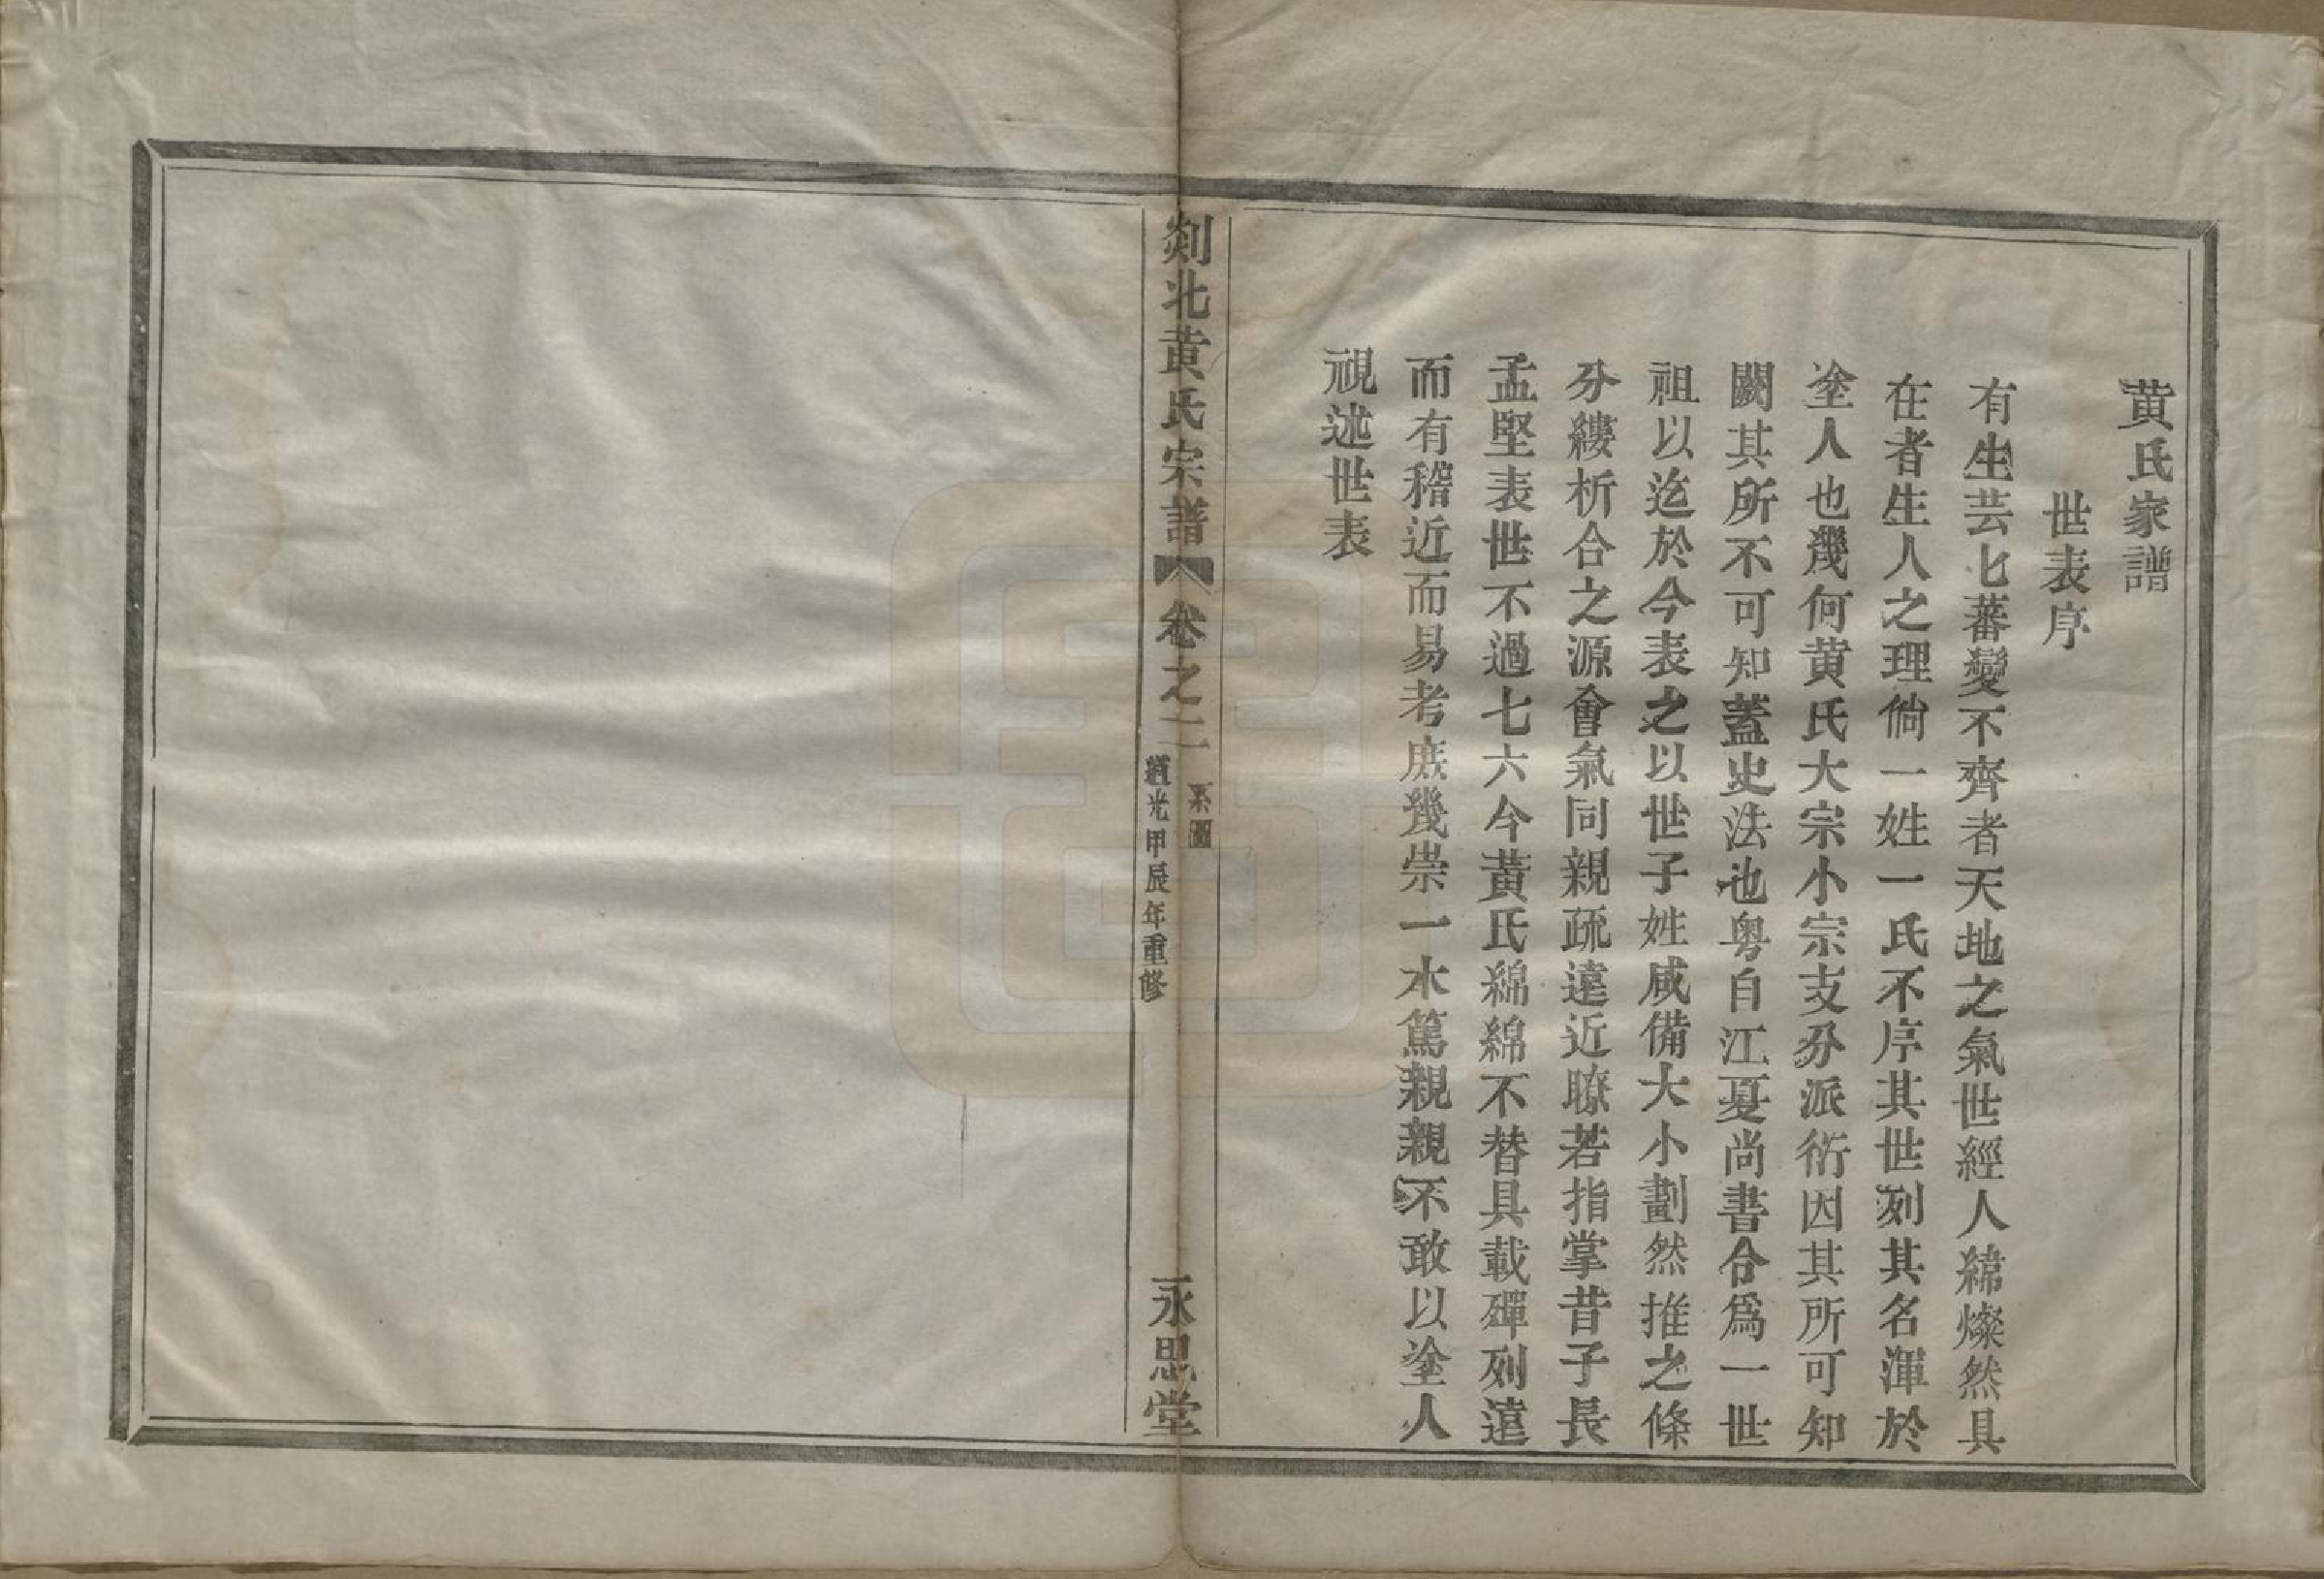 黄氏家譜
世表序
有生芸匕蕃變不齊者天地之氣世經人緯燦然具
在者生人之理倘一姓一氏不序其世列其名渾於
塗人也幾何黄氏大宗小宗支分派衍因其所可知
闕其所不可知蓋史法也粤自江夏尚書合爲一世
祖以迄於今表之以世子姓咸備大小劃然推之條
分縷析合之源會氣同親疏遠近瞭若指掌昔子長
孟堅表世不過七六今黄氏綿綿不替具載殫列遠
而有稽近而易考庶幾崇一木篤親親不敢以塗人
視述世表
剡北黄氏宗譜
卷之二
系圖
道光甲辰年重修
永思堂